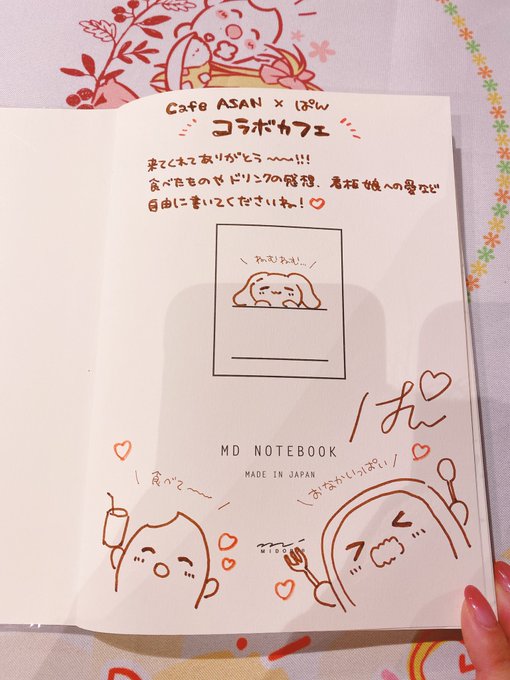 Cafe ASAN × ぱん
コラボカフェ
来てくれてありがとう〜〜!!!
食べたものやドリンクの感想、看板娘への愛など
自由に書いてくださいね!♡
\ ねむねむ… /
ぱん♡
MD NOTEBOOK
MADE IN JAPAN
\ 食べて〜〜 /
\ おなかいっぱい /
MIDORI